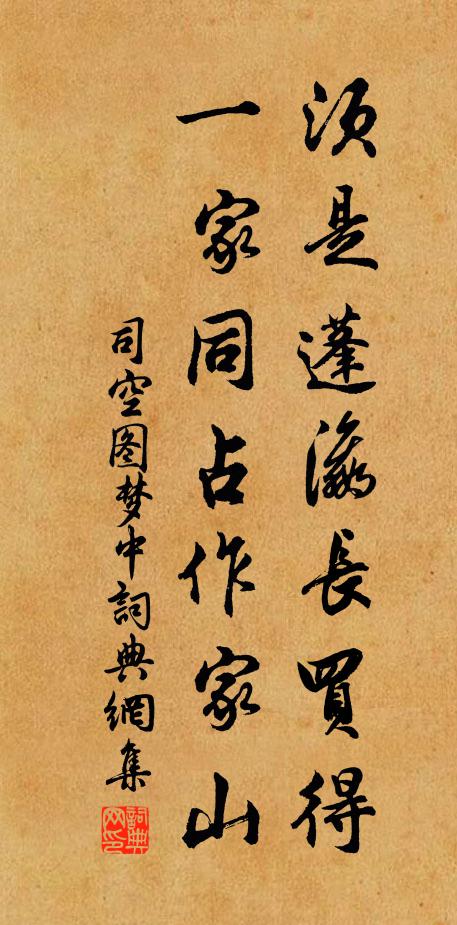 须是蓬瀛長買得
一家同占作家山
司空图梦中詞典網集
詞典网印